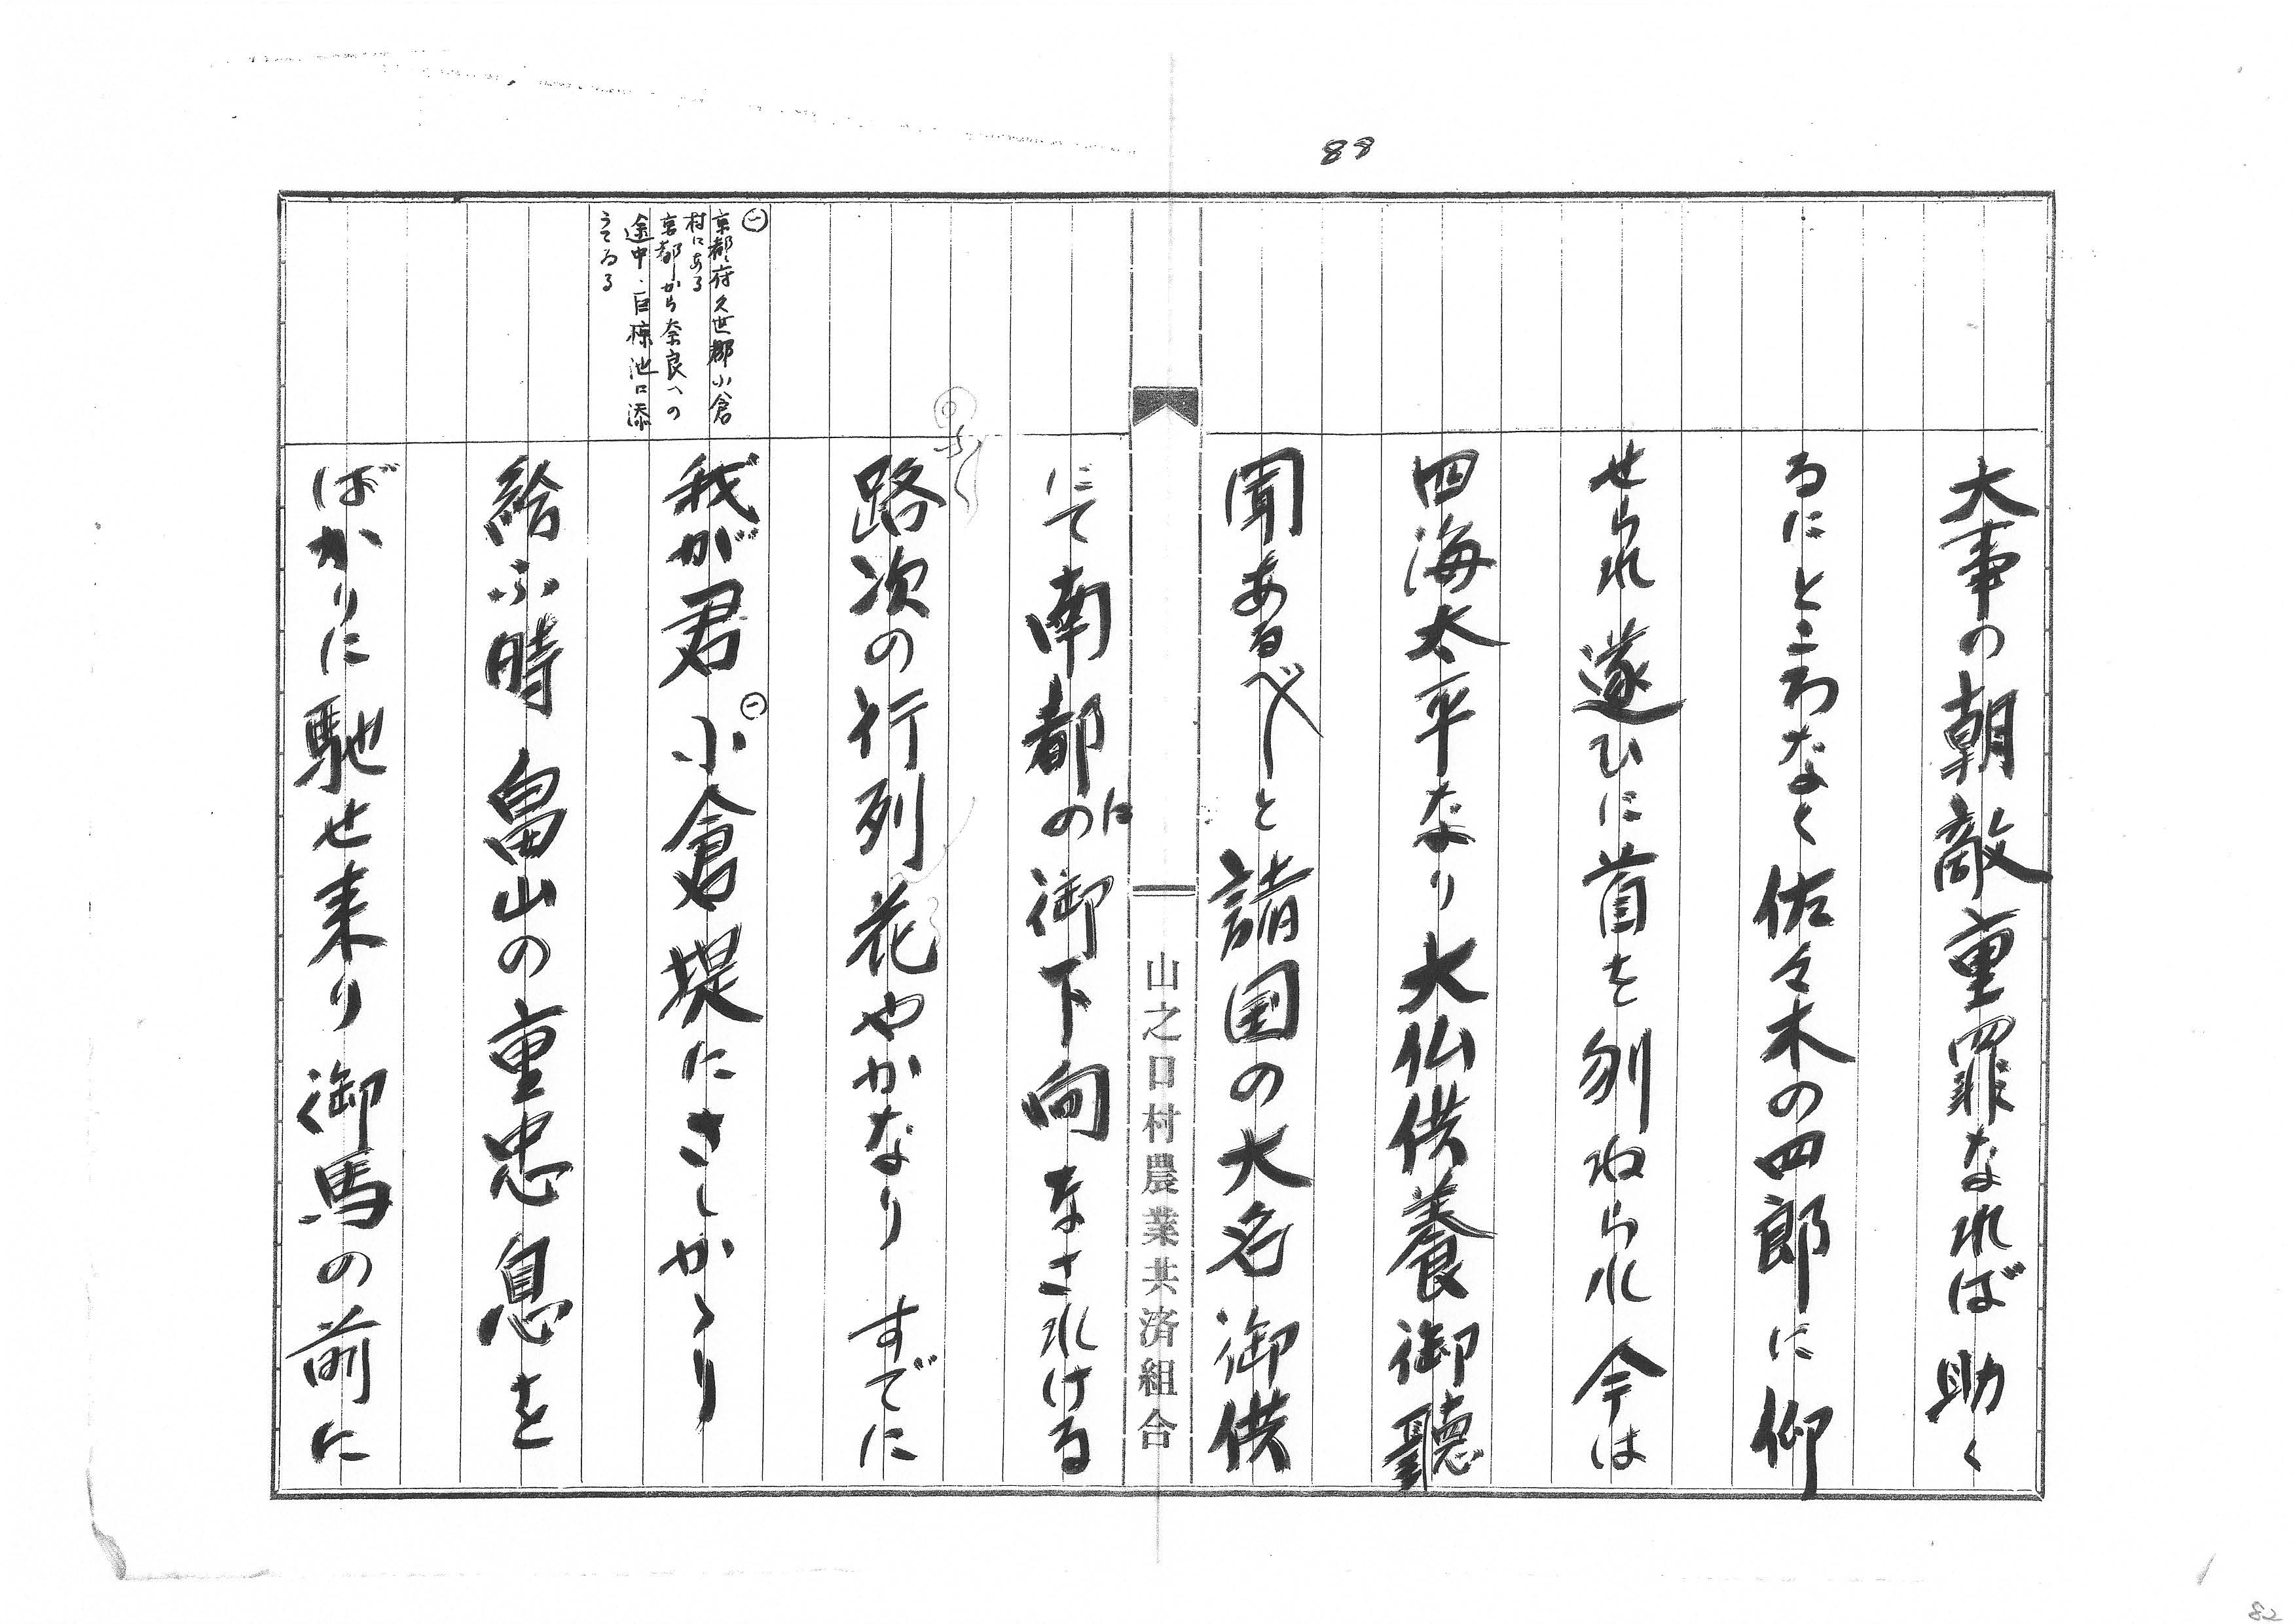 88
大事の朝敵重罪なれば助く
るにところなく佐々木の四郎に仰
せられ遂ひに首を刎ねられ今は
四海太平なり大仏供養御聴
聞あるべしと諸国の大名御供
にて南都の御下向なされける
に
山之口村農業共済組合
路次の行列花やかなりすでに
我が君小倉堤にさしかゝり
㊀
給ふ時畠山の重忠息を
ばかりに馳せ来り御馬の前に
㊀
京都府久世郡小倉
村にある
京都から奈良への
途中、巨椋池に添
うてゐる
82